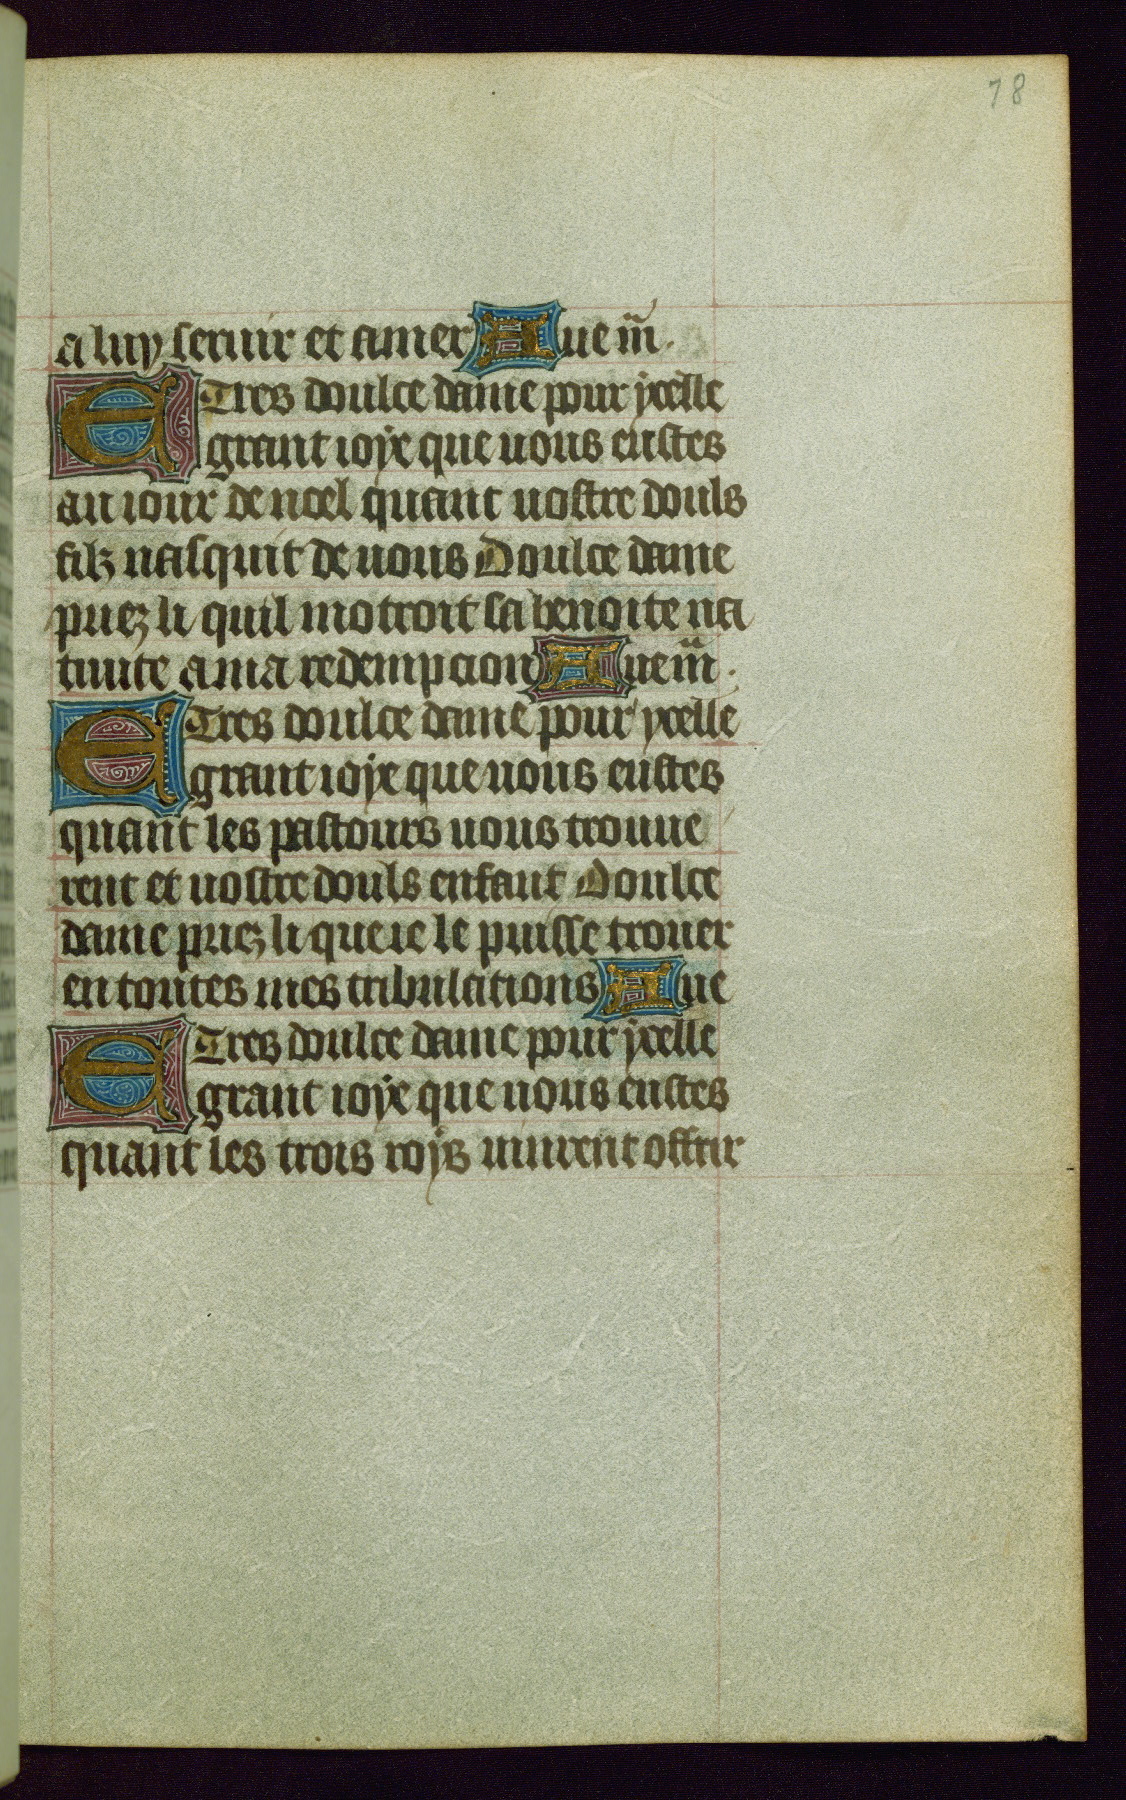 78
a luy seruir et amer Aue m̄.
E Tres doulce dame pour ycelle
grant ioye que uous eustes
au iour de noel quant uostre douls
filz nasquit de uous Doulce dame
priez li quil mottroit sa benoite na
tiuite a ma redempcion Aue m̄.
E Tres doulce dame pour ycelle
grant ioye que uous eustes
quant les pastours uous trouue
rent et uostre douls enfant Doulce
dame priez li que ie le puisse trouer
en toutes mes tribulations Aue
E Tres doulce dame pour ycelle
grant ioye que uous eustes
quant les trois roys uinrent offrir